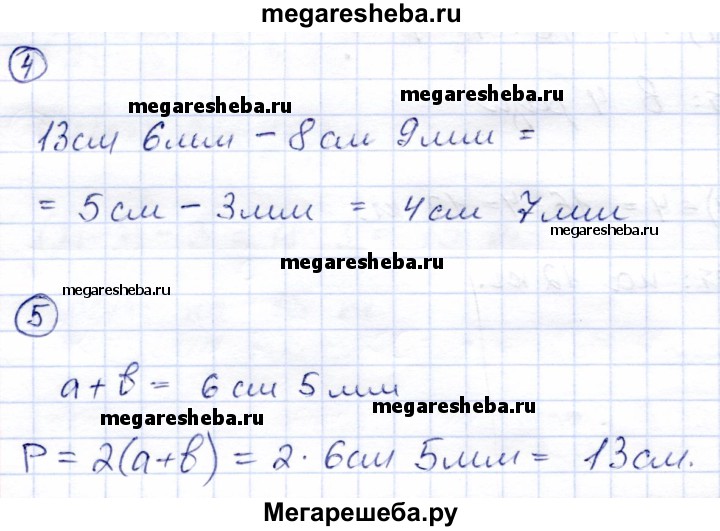 megaresheba.ru
4
megaresheba.ru
megaresheba.ru
13см 6мм - 8см 9мм =
= 5см - 3мм = 4см 7мм
megaresheba.ru
megaresheba.ru
megaresheba.ru
5
a + b = 6см 5мм
megaresheba.ru
megaresheba.ru
P = 2(a+b) = 2 · 6см 5мм = 13см.
Мегарешеба.ру